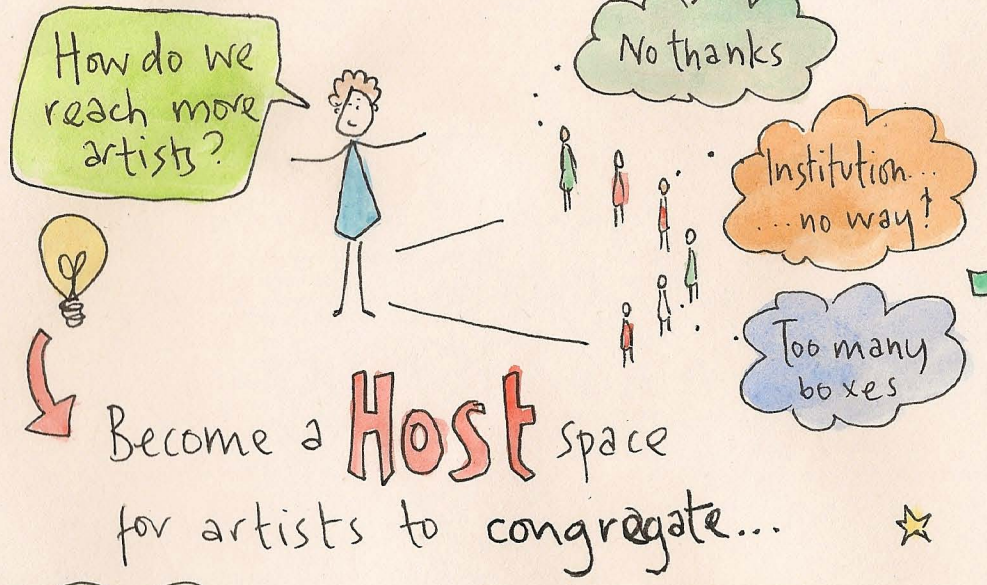 How do we
reach more
artists?
No thanks
Institution...
...no way!
Too many
boxes
Become a Host space
for artists to congregate...